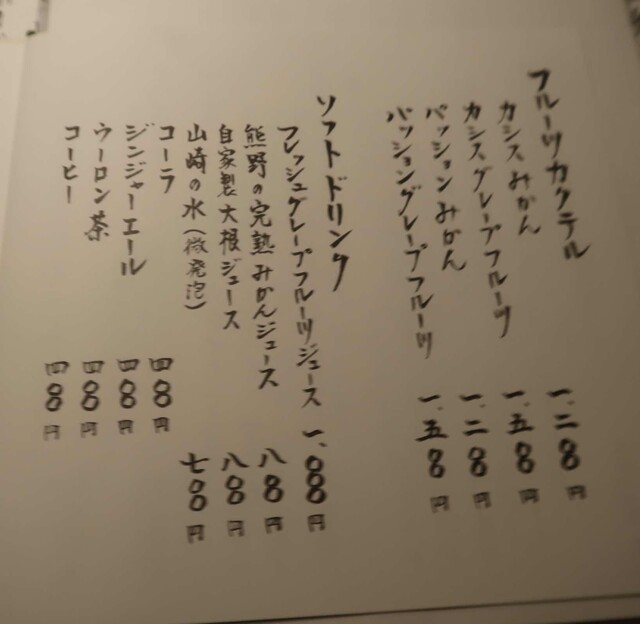 フルーツカクテル
カシスみかん 一、二〇〇円
カシスグレープフルーツ 一、五〇〇円
パッションみかん 一、二〇〇円
パッショングレープフルーツ 一、五〇〇円
ソフトドリンク
フレッシュグレープフルーツジュース 一、〇〇〇円
熊野の完熟みかんジュース 八〇〇円
自家製大根ジュース 八〇〇円
山崎の水(微発泡) 七〇〇円
コーラ 四〇〇円
ジンジャーエール 四〇〇円
ウーロン茶 四〇〇円
コーヒー 四〇〇円